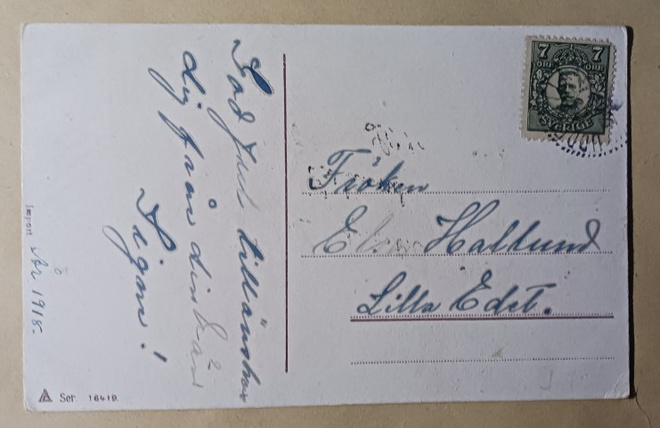 God Jul tillönskar
dig från din vän
Signe!
År 1918.
Import
Ser 16419.
7 7
ÖRE ÖRE
SVERIGE
Fröken
Elsa Hallund
Lilla Edet.